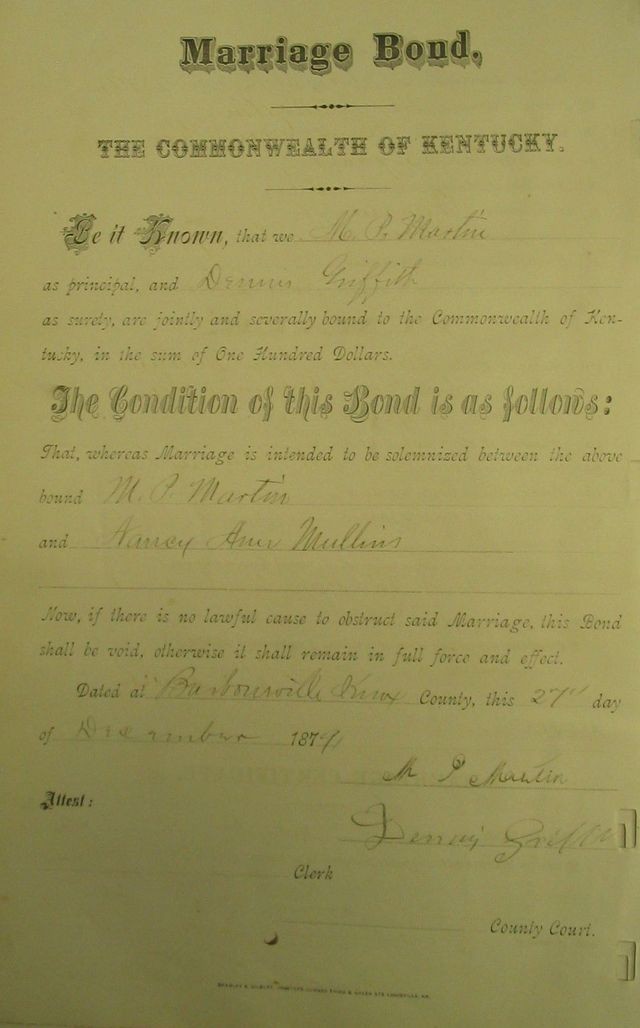 Marriage Bond.
THE COMMONWEALTH OF KENTUCKY.
Be it Known, that we M. P. Martin
as principal, and Dennis Griffith
as surety, are jointly and severally bound to the Commonwealth of Ken-
tucky, in the sum of One Hundred Dollars.
The Condition of this Bond is as follows:
That, whereas Marriage is intended to be solemnized between the above
bound M. P. Martin
and Nancy Ann Mullins
Now, if there is no lawful cause to obstruct said Marriage, this Bond
shall be void, otherwise it shall remain in full force and effect.
Dated at Barbourville Knox County, this 27" day
of December 187
M P Martin
Attest:
Dennis Griffith
Clerk
County Court.
BRADLEY & GILBERT, PRINTERS, CORNER THIRD & GREEN STS LOUISVILLE, KY.